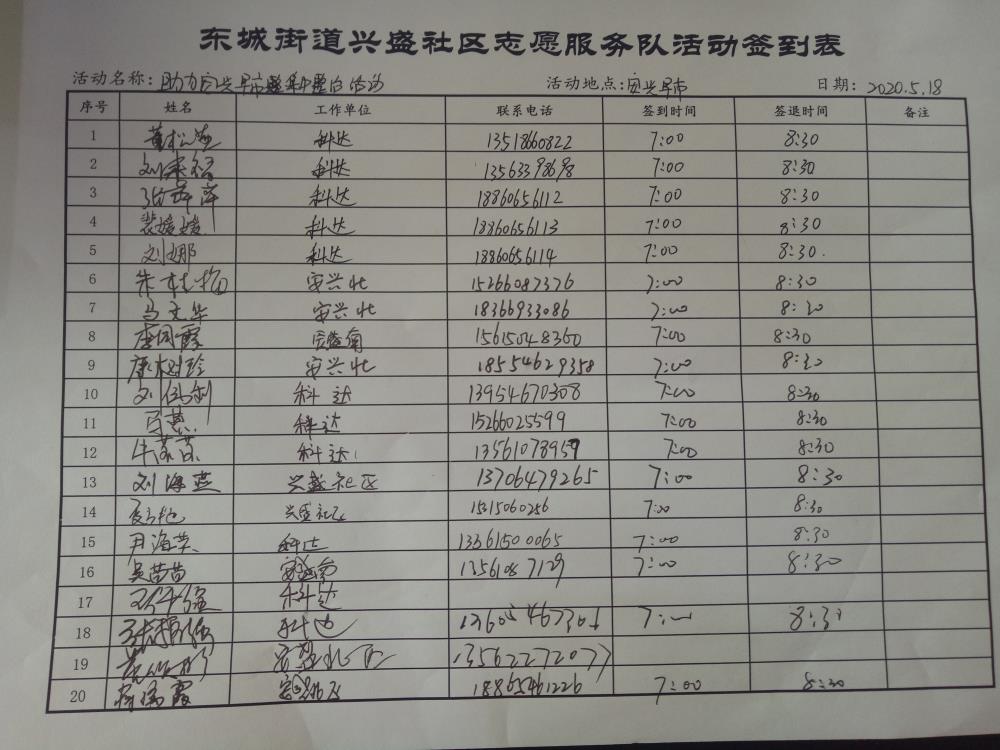 东城街道兴盛社区志愿服务队活动签到表
活动名称: 助力安兴早市 活动 活动地点: 安兴早市 日期: 2020.5.18
序号 姓名 工作单位 联系电话 签到时间 签退时间 备注
1 董松莲 科达 13518660822 7:00 8:30
2 科达 13563398698 7:00 8:30
3 张萍萍 科达 18860656112 7:00 8:30
4 裴媛媛 科达 18860656113 7:00 8:30
5 刘娜 科达 18860656114 7:00 8:30
6 朱桂梅 安兴北 15266087376 7:00 8:30
7 马文华 安兴北 18366933086 7:00 8:30
8 李同霞 安兴南 15615048360 7:00 8:30
9 康树玲 安兴北 18554629358 7:00 8:30
10 科达 13954670308 7:00 8:30
11 马燕 科达 15266025599 7:00 8:30
12 牛苗苗 科达 13561078959 7:00 8:30
13 刘海燕 兴盛社区 13706479265 7:00 8:30
14 兴盛社区 15315060256 7:00 8:30
15 尹海英 科达 13361500065 7:00 8:30
16 吴苗苗 安兴南 1356108 7129 7:00 8:30
17 科达
18 科达 13605467301 7:00 8:30
19 13562272077
20 18865461226 7:00 8:30